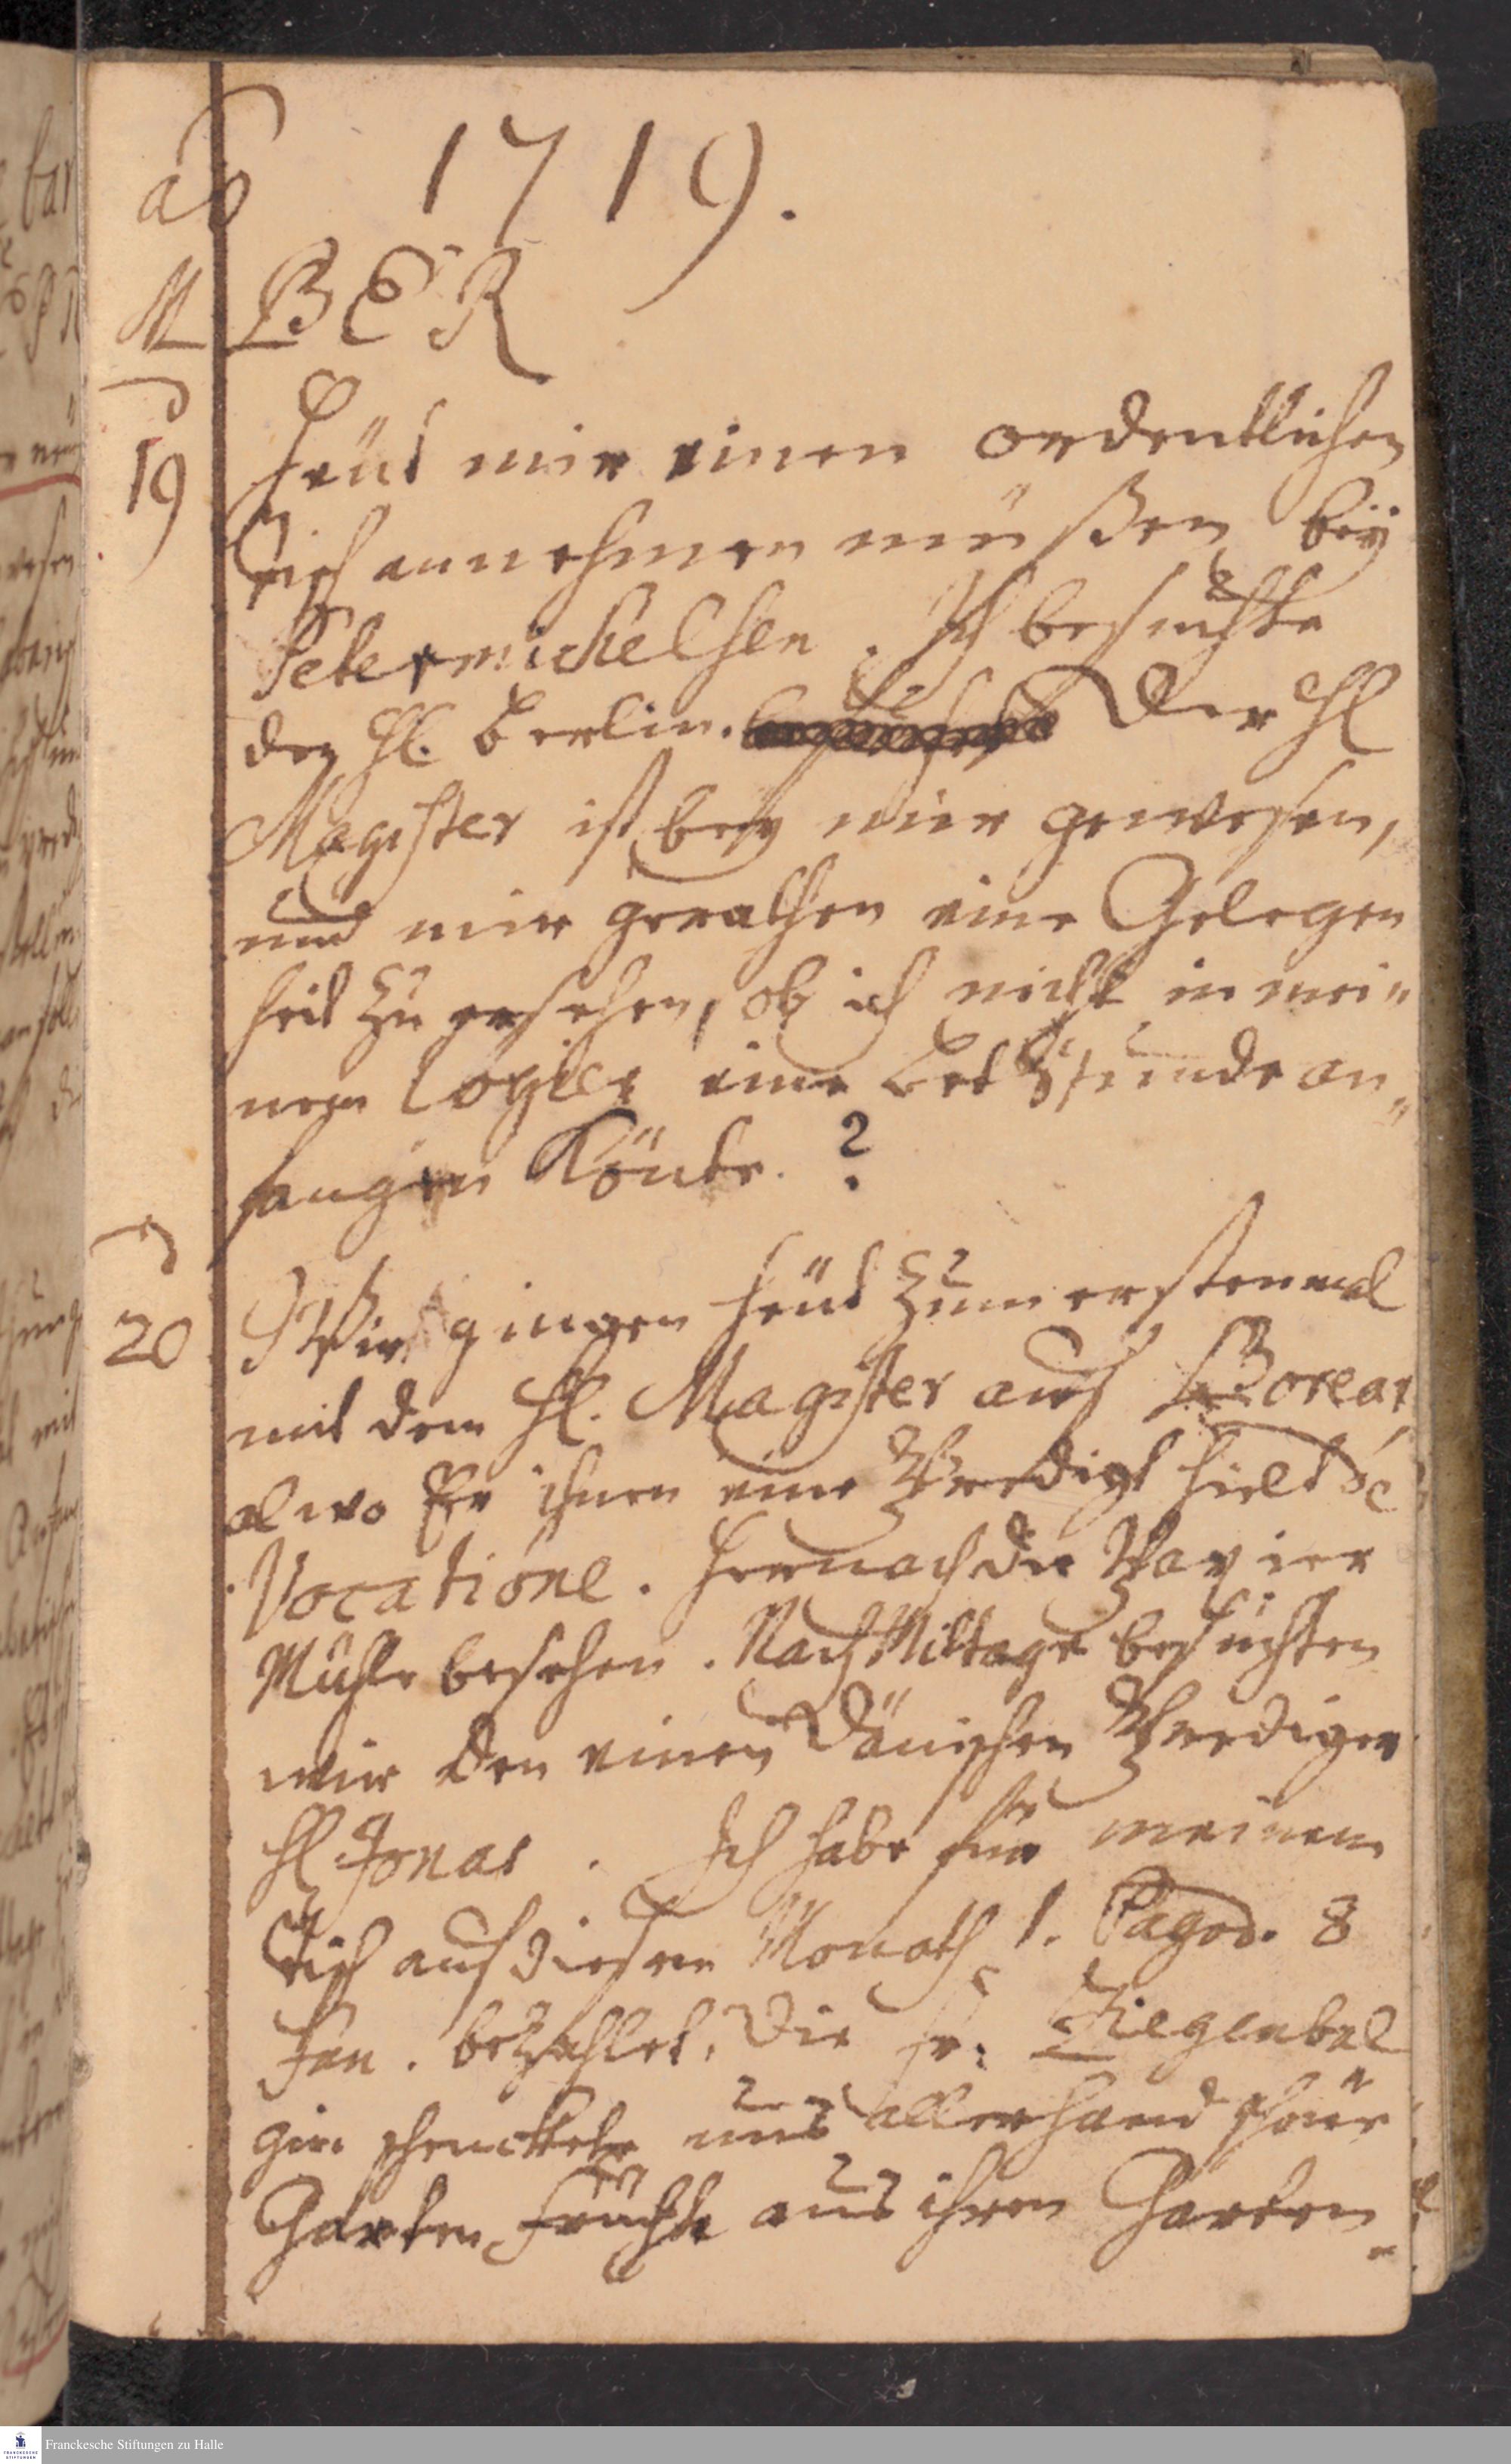 1719.
M BER
19 Heüt mir einen ordentlichen
Tisch annehmen müßen bey
Petermichelsen. Ich besuchte
den H. Berlin. Der H
Magister ist bey mir gewesen,
und mir gerathen eine Gelegen
heit zu ersehen, ob ich nicht in mei„
nem Logier eine Bet Stunde an„
fangen Könte. ?
20 Wir gingen heüt zum erstenmal
mit dem H. Magister auf Borear
alwo Er ihnen eine Predigt hielt
Vocatione. Hernach die Papier
Mühle besehen. Nach Mittage besuchten
wir den einen Dänischen Prediger
H Jonas. Ich habe für meinem
Tisch auf diesem Monath 1. Pagod. 8
Fan. bezahlet. Die Fr: Ziegenbal
gin schenckete uns allerhand schöne
Garten Früchte aus ihren Garten
Franckesche Stiftungen zu Halle